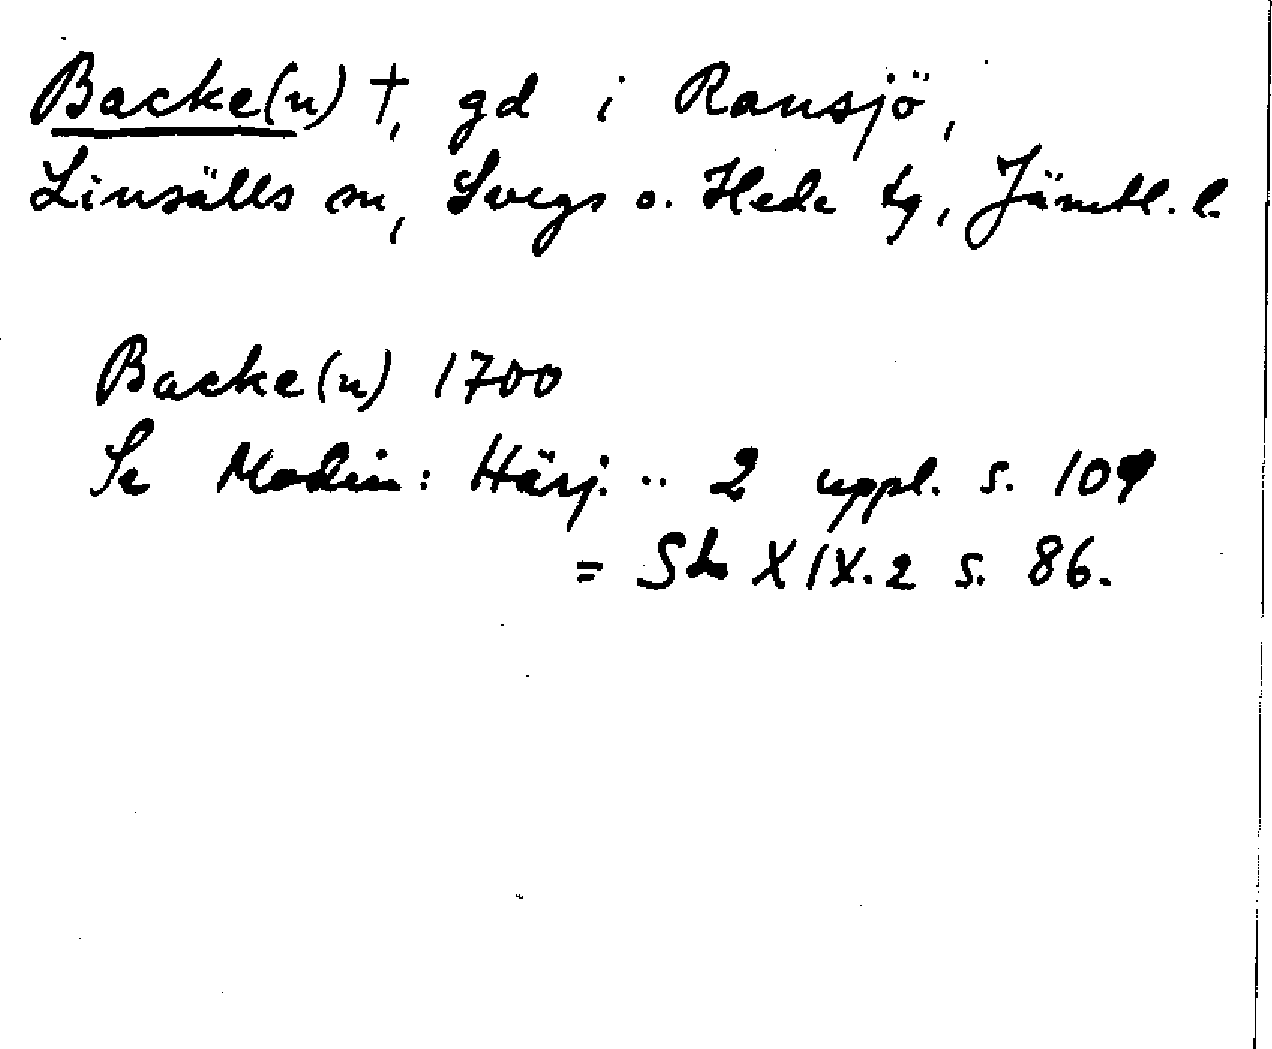 Backe(n) †, gd i Ransjö,
Linsälls sn, Svegs o. Hede tg, Jämtl. l.
Backe(n) 1700
Se Modin: Härj. .. 2 uppl. s. 109
= XIX.2 s. 86.